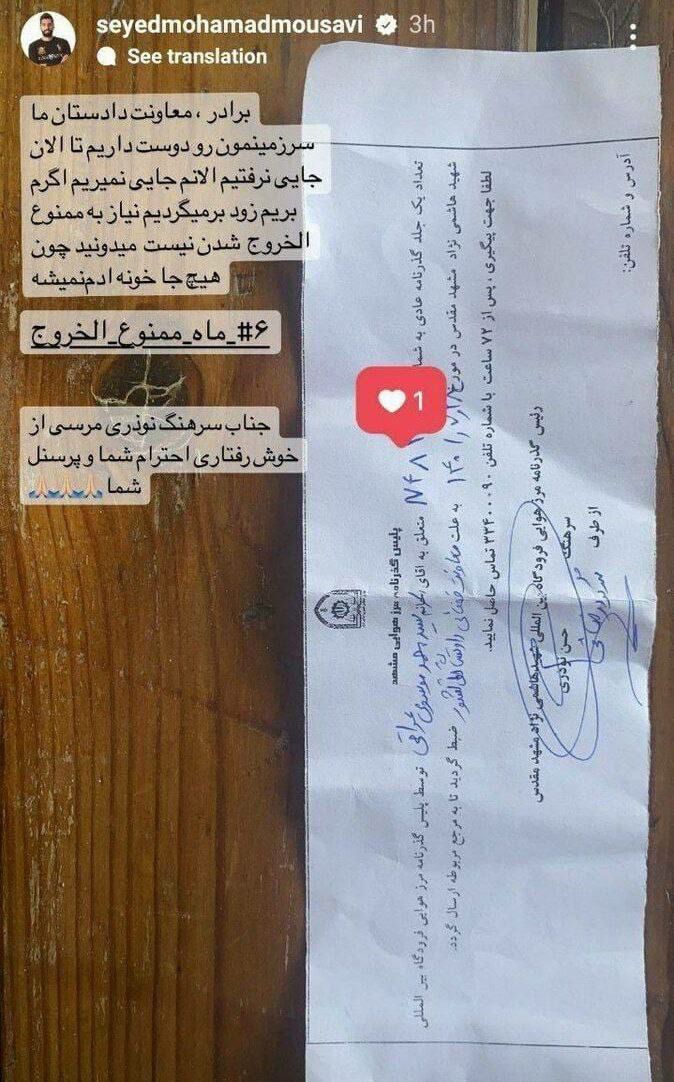 seyedmohamadmousavi 3h
See translation
برادر ، معاونت دادستان ما
سرزمینمون رو دوست داریم تا الان
جایی نرفتیم الانم جایی نمیریم اگرم
بریم زود برمیگردیم نیاز به ممنوع
الخروج شدن نیست میدونید چون
هیچ جا خونه ادم نمیشه
#۶_ماه_ممنوع_الخروج
جناب سرهنگ نوذری مرسی از
خوش رفتاری احترام شما و پرسنل
شما 🙏🏻🙏🏻🙏🏻
1
پلیس گذرنامه مرز هوایی مشهد
تعداد یک جلد گذرنامه عادی به شما متعلق به آقای سید محمد موسوی عراقی توسط پلیس گذرنامه مرز هوایی فرودگاه بین المللی
شهید هاشمی نژاد مشهد مقدس در مورخ ۱۴۰۱/۷/ به علت ضبط گردید تا به مرجع مربوطه ارسال گردد.
لطفا جهت پیگیری ، پس از ۷۲ ساعت با شماره تلفن ۳۳۴۰۰۰۹۰ تماس حاصل نمایید.
رئیس گذرنامه مرز هوایی فرودگاه بین المللی شهید هاشمی نژاد مشهد مقدس
سرهنگ حسن نوذری
از طرف
آدرس و شماره تلفن: